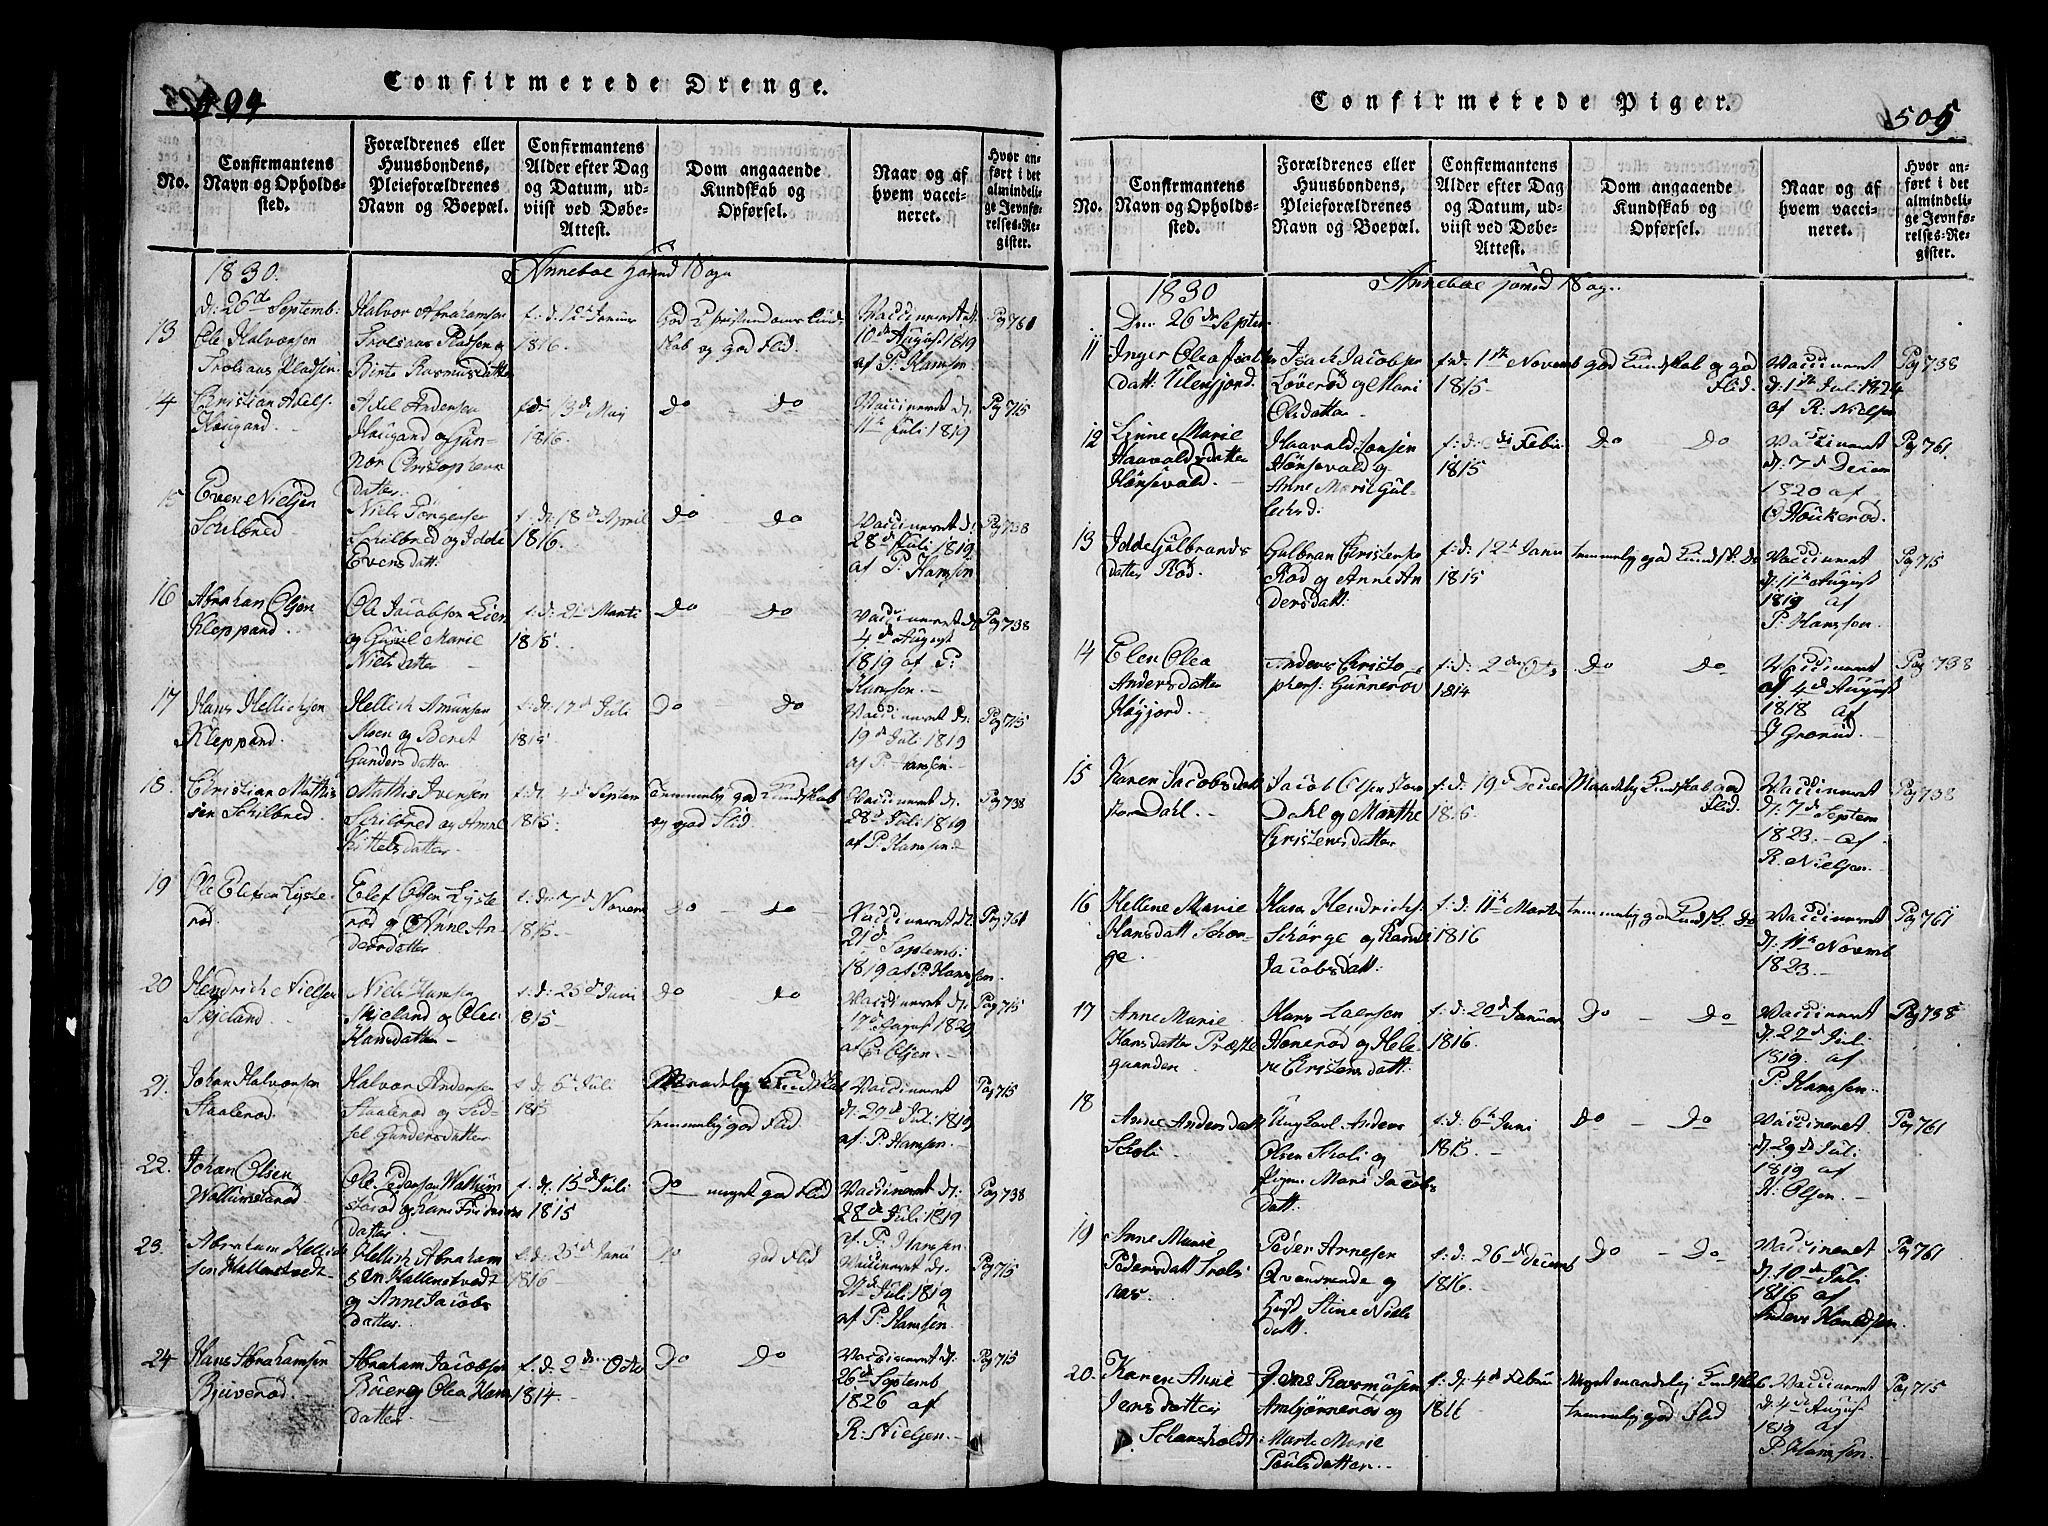 Confirmerede Drenge.
No.
Confirmantens
Navn og Opholds-
sted.
Forældrenes eller
Huusbondens,
Pleieforældrenes
Navn og Boepæl.
Confirmantens
Alder efter Dag
og Datum, ud-
viist ved Døbe-
Attest.
Dom angaaende
Kundskab og
Opførsel.
Naar og af
hvem vacci-
neret.
Hvor an-
ført i det
almindeli-
ge Jevnfø-
relses-Re-
gister.
1830.
d: 26de Septemb:
13
Ole Halvorsen
Halvor Abrahamsen
Birte Rasmusdatter
1816.
God Christendoms Kund-
skab og god Flid.
Vaccineret d:
10de August 1819
af P: Hansen
Pag 761
14
Christian Axels:
Haugand.
Axel Andersen
Haugand og Gun-
nor Christophers
datter.
f: d: 13de Maj
1816.
Do Do
Vaccineret d:
11te Juli 1819
Pag 715
15
Even Nielsen
Schilbred
Niels Jørgensen
Schilbred og Idde
Evensdatt:
f: d: 18de April
1816.
Do - Do
Vaccineret d:
28de Juli 1819
af P: Hansen
Pag 738
16
Abraham Olsen
Kleppand.
Ole Jacobsen Lier
og Gunil Marie
Nielsdatter
1815.
Do Do
Vaccineret d:
4de August
1819 af P:
Hansen.
Pag 738
17
Hans Hellichsen
Kleppand.
Hellich Amunsen
Moen og Beret
Gundersdatter
f: d: 17de Juli
1815
Do - Do
Vaccineret d:
19de Juli 1819
af P: Hansen.
Pag 715
18.
Christian Mathis
sen Schilbred
Mathis Ivensen
Schilbred og Anne
Kittelsdatter
f: d: 4de Septem
1815.
Temmelig god Kundskab
og god Flid
Vaccineret d:
28de Juli 1819
af P: Hansen
Pag 738
19
Ole Elefsen Lyste-
rød.
Elef Olsen Lyste
rød og Anne An-
dersdatter
f: d: 7de Novem
1815.
Do - Do
Vaccineret d:
21de
Septemb:
1819 af P: Hansen.
Pag 761
20
Hendrich Nielsen
Skjeland
Niels Hansen
Skjeland og Olea
Hansdatter
f: d: 25de Juni
1815
Do - Do
Vaccineret d:
17de August 1829
Olsen.
Pag 715
21.
Johan Halvorsen
Staalerød
Halvor Andersen
Staalerød og Sid-
sel Gundersdatter
f: d: 6te Juli
1815
Maadelig Kundskab
temmelig god Flid
Vaccineret
d: 29de Juli: 1819
af P: Hansen.
Pag 715
22.
Johan Olsen
Wallumsrød
Ole Pedersen Wallum
datter
f: d: 15de Juli
1815
Do meget god Flid
Vaccineret d:
28de Juli 1819
af P: Hansen
Pag 738
23.
Abraham Hellich
sen Hallenstvedt
Hellich Abraham
sen Hallenstvedt
og Anne Jacobs
datter
f: d: 25de Januar
1816
Do god Flid
Vaccineret d:
21de Juli 1819
af P: Hansen
Pag 715
24
Hans Abrahamsen
Bjuverød.
Abraham Jacobsen
Buer og Olea Hans
datter
f: d: 2den Octo
1814
Do Do
Vaccineret d:
26de Septemb
1826 af
R: Nielsen.
Pag 715
Confirmerede Piger.
505
No.
Confirmantens
Navn og Opholds-
sted.
Forældrenes eller
Huusbondens,
Pleieforældrenes
Navn og Boepæl.
Confirmantens
Alder efter Dag
og Datum, ud-
viist ved Døbe-
Attest.
Dom angaaende
Kundskab og
Opførsel.
Naar og af
hvem vacci-
neret.
Hvor an-
ført i det
almindeli-
ge Jevnfø-
relses-Re-
gister.
1830
Den 26de Septem
11
Inger Olea Isachs
datt:
Isach Jacobsen
Løverød og Mari
Olsdatter
f: d: 1ste Novemb
1815.
god Kundskab og god
Flid.
Vaccineret
d: 1ste Juli 1824
af R: Nielsen
Pag 738
12
Linne Marie
Haavaldsdatter
Hønsevald.
Haavald Hansen
Hønsevald og
Anne Marie Gul-
f: d: Febr
1815
Do - Do
Vaccineret
d: 7de Decem
1820 af
Houkerød.
Pag 761.
13
Idde Gulbrands
datter Rød.
Gulbran Christens
Rød og Anne An
dersdatt:
f: d: 12te Janu
1815
temmelig god Kundsk: Do
Vaccineret
d: 11te August
1819 af
P: Hansen.
Pag 715
14
Elen Olea
Andersdatter
Høyjord.
Anders Christo-
phers: Gunnerød
f: d: 2den Octo
1814
Do Do
Vaccineret
d: 4de August
1818 af
J Grorud.
Pag 738
15
Karen Jacobsdatt
Dahl.
Jacob Olsen
Dahl og Marthe
Christensdatter
f: d: 19de Decem
Maadelig Kundskab god
Flid.
Vaccineret
d: 7de Septem
1823 - af
R. Nielsen.
Pag 738
16
Hellene Marie
Hansdatt Schør-
ge.
Hans Hendrichs:
Schørge og Randi
Jacobsdatt:
f: d: 11te Martii
1816
temmelig god Kundsk. Do
Vaccineret
d: 11te Novemb
1823.
Pag 761
17
Anne Marie
Hansdatter Præste
gaarden.
Hans Larsen
Hanerød og Hele-
ne Christensdatt:
f: d: 20de Januar
1816.
Do - Do
Vaccineret
d: 27de Juli
1819. af
P: Hansen.
Pag 738
18
Anne Andersdatt
Scholi
Ungkarl Anders
Olsen Skoli og
Pigen Mari Jacobs
datt:
f: d: 6te Juni
1815.
Do - Do
Vaccineret
d: 29de Juli
1819 af
H: Olsen.
Pag 761
19
Anne Marie
Pedersdatt Trols
aas.
Peder Arnesen
Qvændrende og
Stine Niels
datt.
f: d: 26de Decemb
1816.
Do - Do
Vaccineret
d: 10de Juli
1816 af
Anders
Pag 761
20.
Karen Anne
Jensdatter
Schansholdt
Jens Rasmusen
Ambjørnerød og
Marte Marie
Poulsdatter.
f: d: 4de Febru
1816
Meget maadelig Kundskab
temmelig god Flid
Vaccineret
d: 4de August
1819 af
P. Hansen.
Pag 715